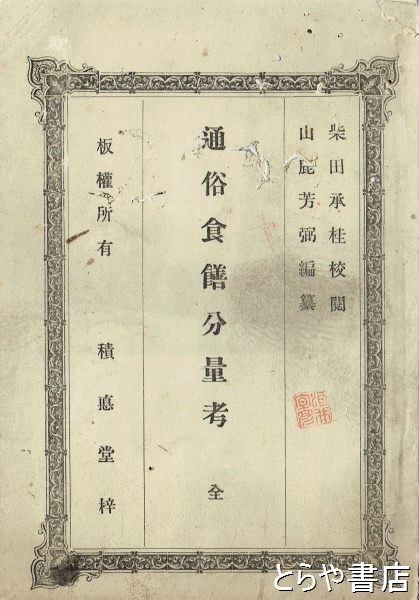 柴田承桂校閲
山鹿芳弼編纂
通俗食饍分量考 全
板權所有 積悳堂梓
とらや書店